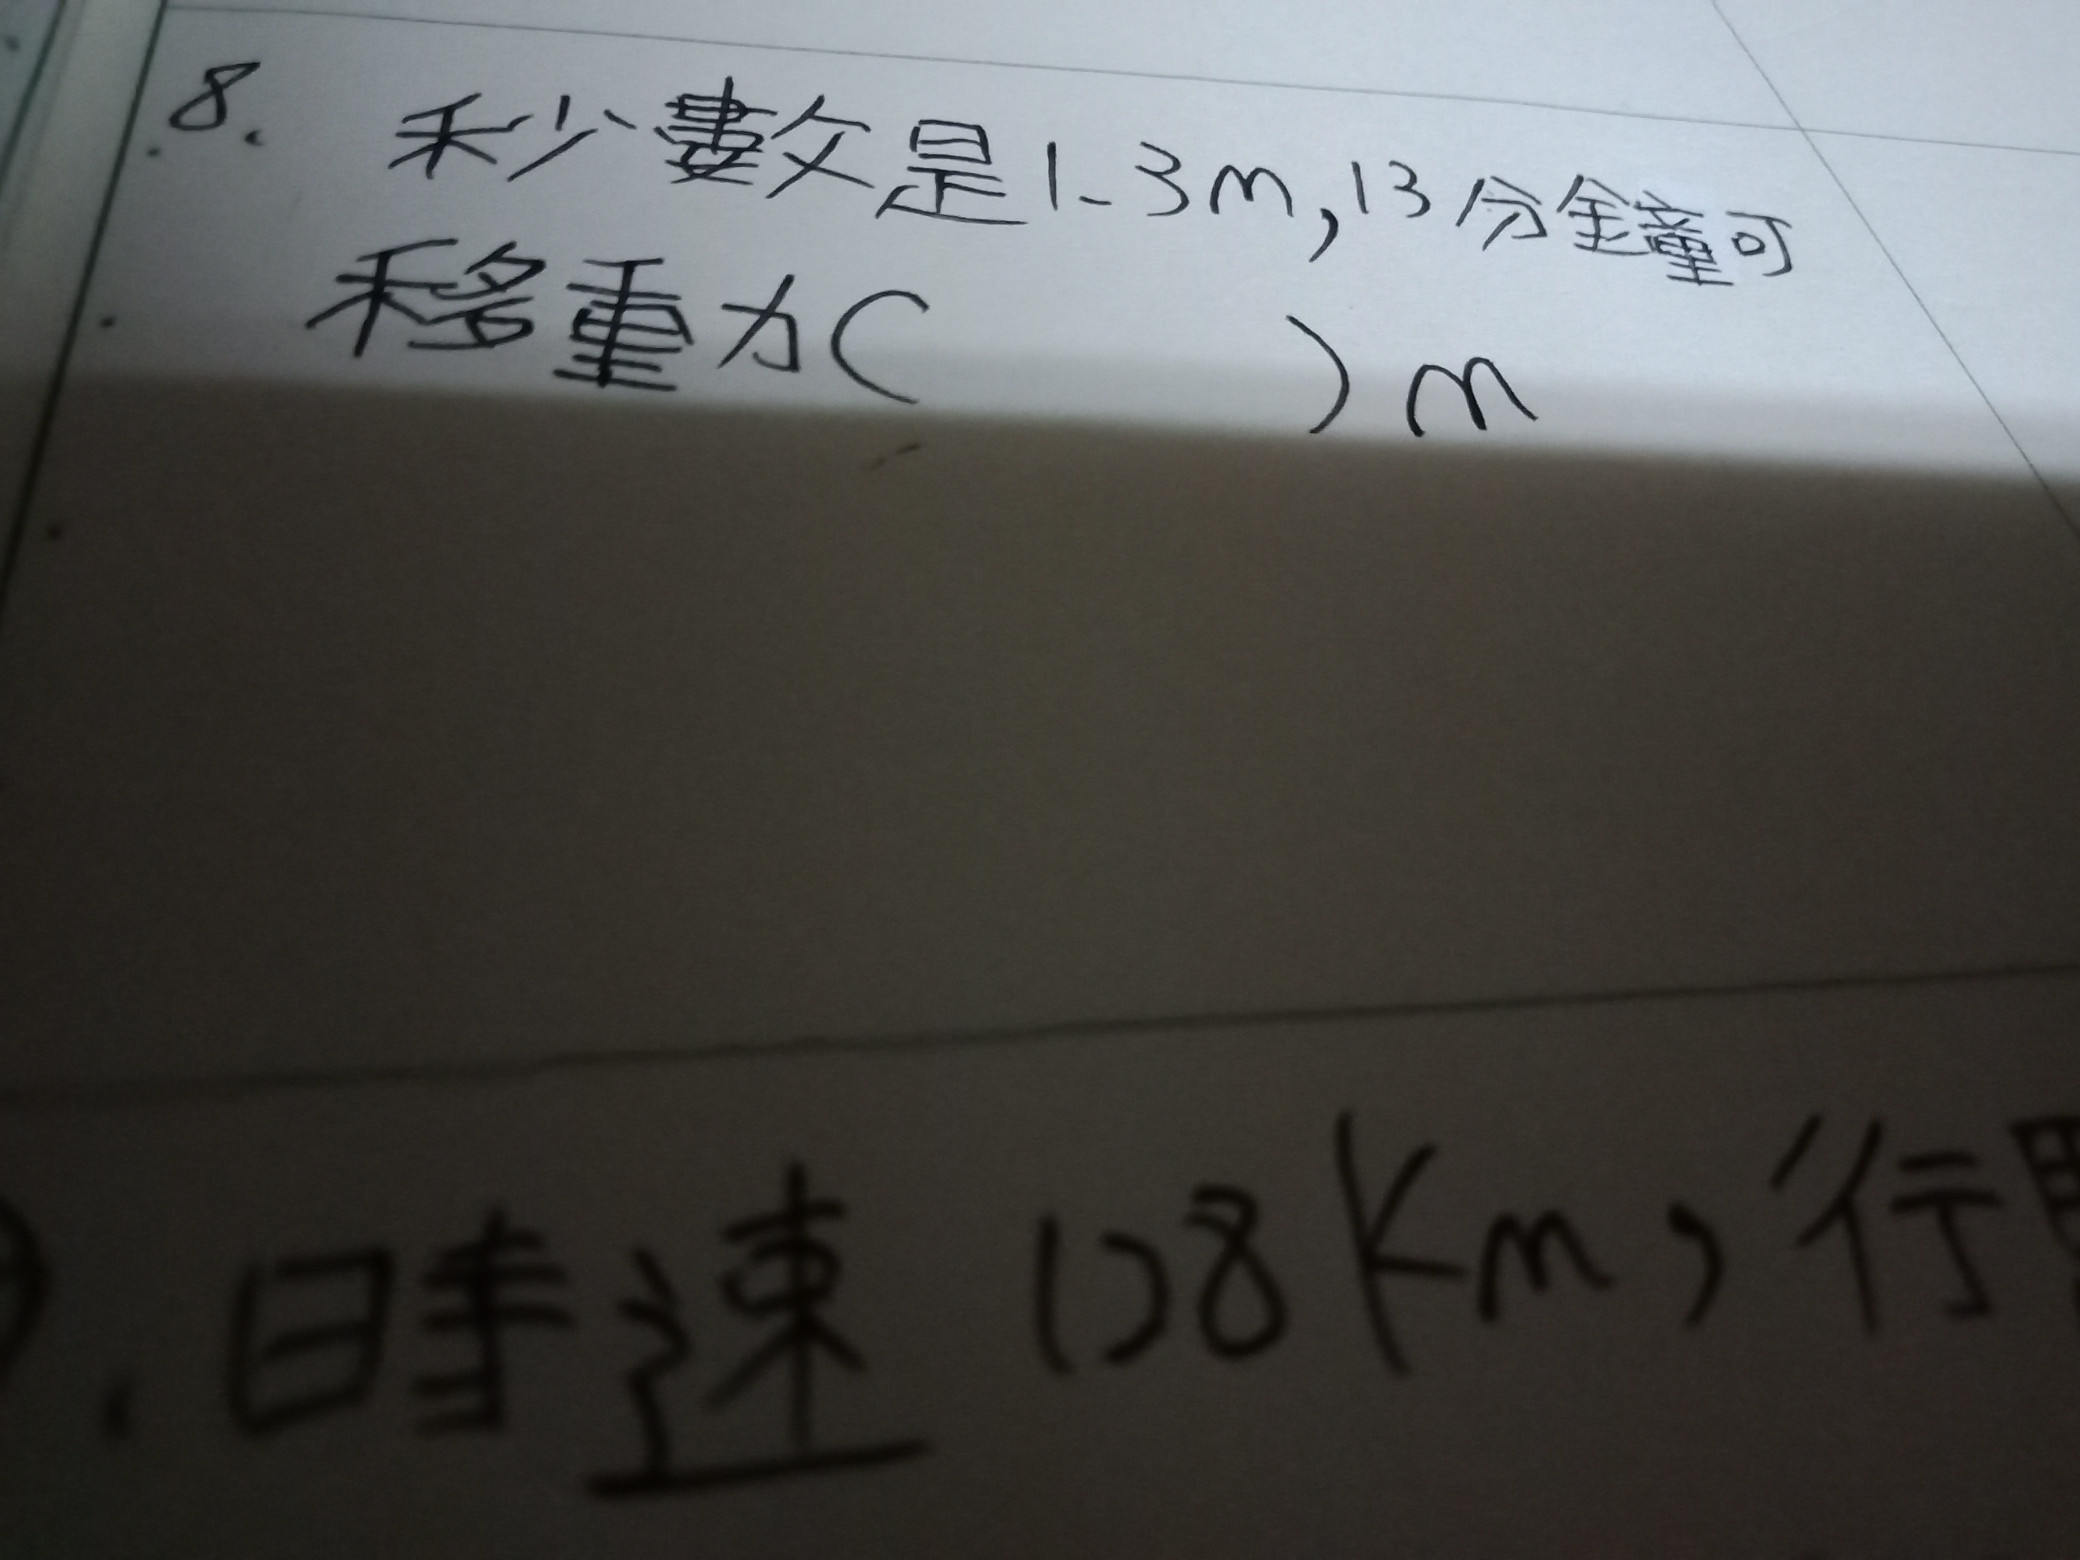 8. 秒數是1.3m,13分鐘可
移重力(　　　)m
. 時速 138Km,行